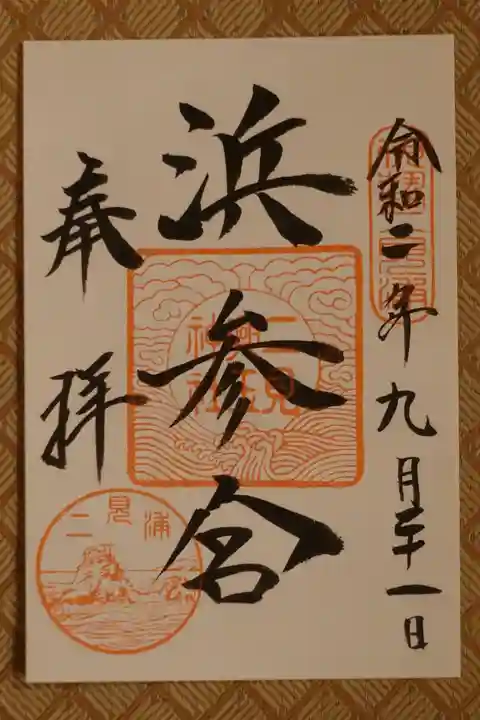 令和二年九月二十一日
浜参宮
奉拝
二見興玉神社
二見浦